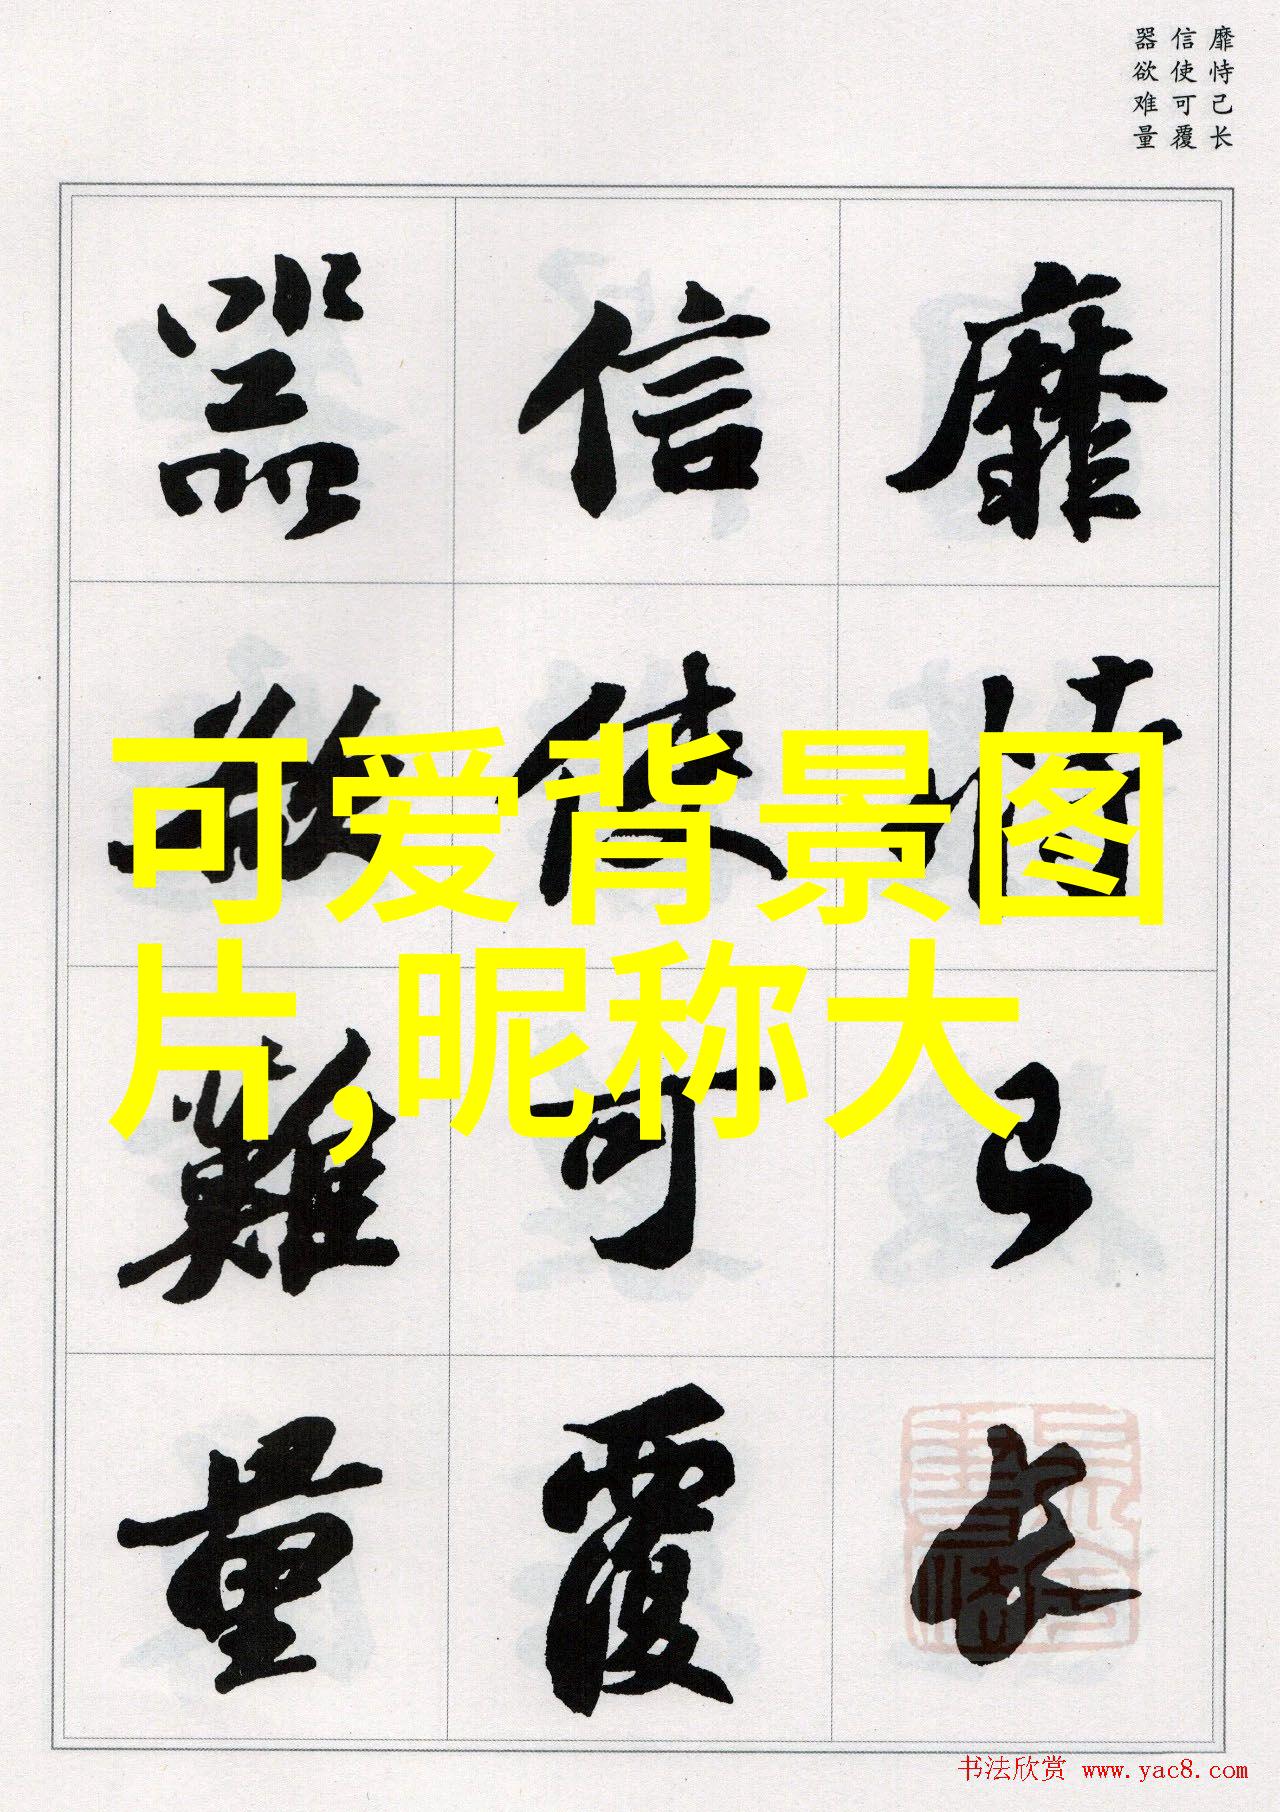 靡恃己长
信使可覆
器欲难量
靡恃己長
信使可覆
器欲難量
可爱背景图
片,昵称大
书法欣赏 www.yac8.com